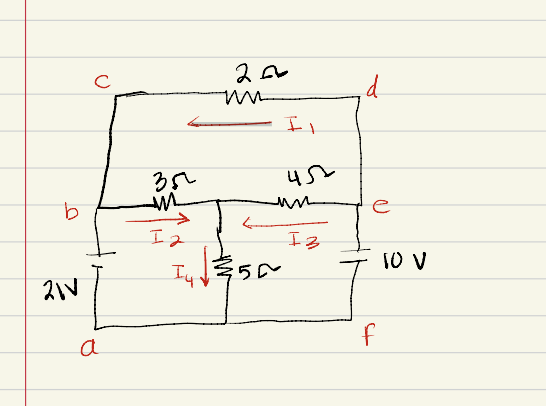 2 Ω
c
d
I1
3Ω
4Ω
b
e
I2
I3
I4
5Ω
10 V
21V
a
f